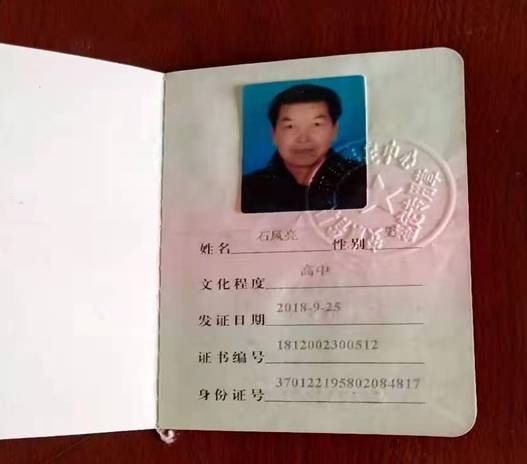 姓名 石风亮 性别
文化程度 高中
发证日期 2018-9-25
证书编号 1812002300512
身份证号 370122195802084817